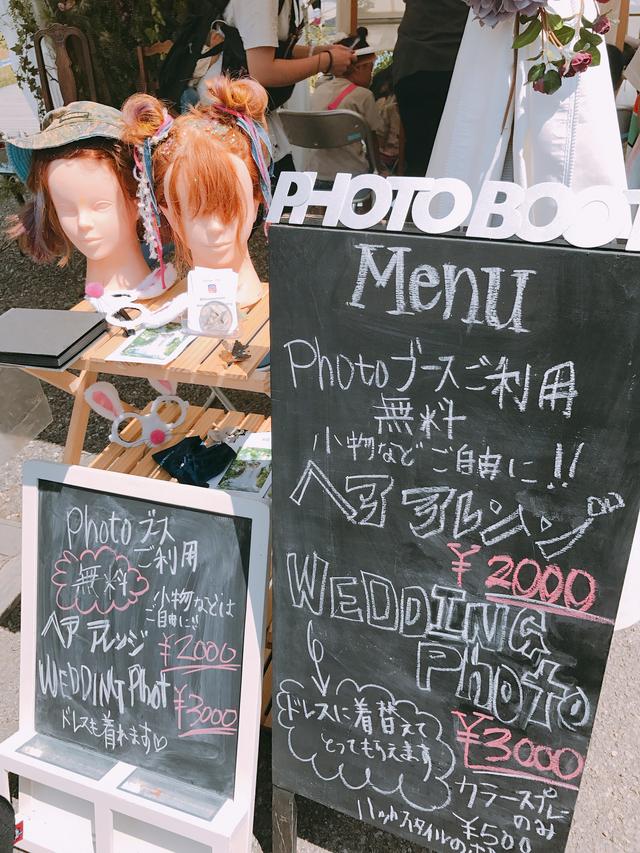 PHOTO BOOT
Menu
Photoブースご利用
無料
小物などご自由に!!
ヘアアレンジ
¥2000
WEDDING
PhoTo
ドレスに着替えて
とってもらえます
¥3000
カラースプレー
のみ
¥500
ハットスタイルの
Photoブース
ご利用
無料
小物などは
ご自由に!!
ヘアアレンジ
¥2000
WEDDING Phot
¥3000
ドレスも着れます♡